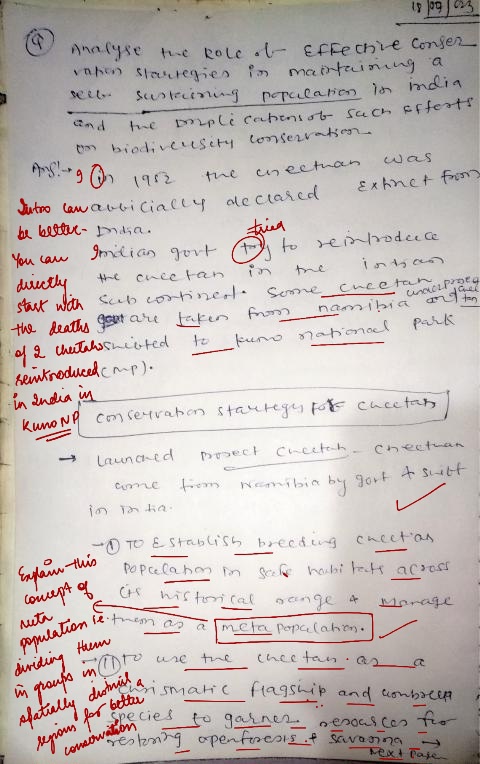 18/07/023
Q Analyse the Role of Effective conser
vation startegies in maintaining a
self sustaining population in india
and the implications of such efforts
on biodiversity conservation
Ans:→ In 1952 the cheetah was
officially declared Extinct from
India.
tried
Indian govt try to reintroduce
the cheetah in the indian
Sub continent. Some cheetah under project cheetah
are taken from namibia and
shifted to Kuno national park
(MP).
Intro can
be better-
You can
directly
start with
the deaths
of 2 cheetahs
reintroduced
in India in
Kuno NP
Conservation startegy for cheetah
→ Launched project cheetah - cheetah
come from Namibia by govt & shift
in india.
→ ① TO Establish breeding cheetah
population in safe habitats across
its historical range & manage
them as a metapopulation.
Explain this
concept of
meta
population i.e.
dividing them
in groups in
spatially dismil a
regions for better
conservation
→ ② To use the cheetah as a
charismatic flagship and umbrella
species to garner resources for
restoring open forests & savanna →
Next Page